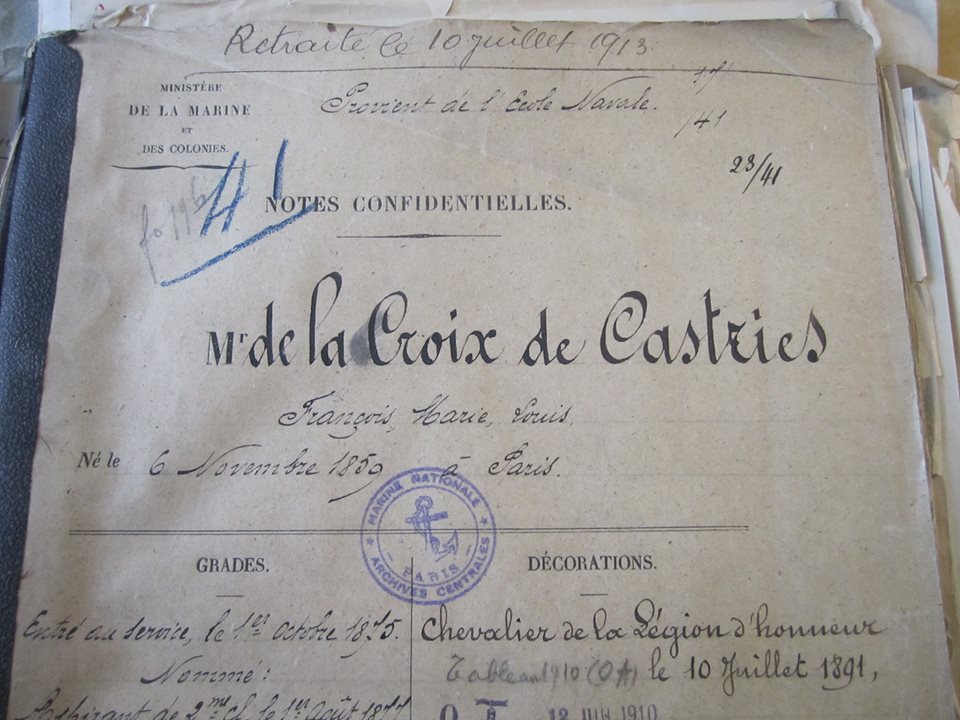 Retraité le 10 Juillet 1913.
MINISTÈRE
DE LA MARINE
ET
DES COLONIES.
Provient de l'Ecole Navale.
/41
23/41
41
NOTES CONFIDENTIELLES.
Mr de la Croix de Castries
François, Marie, Louis.
Né le 6 Novembre 1859 à Paris.
MARINE NATIONALE
PARIS
ARCHIVES CENTRALES
GRADES.
Entré au service, le 1er Octobre 1875.
Nommé:
Aspirant de 2me cl. le 1er Août 1877
DÉCORATIONS.
Chevalier de la Légion d'honneur
Tableau 1910 (OA) le 10 Juillet 1891,
12 JUIN 1910